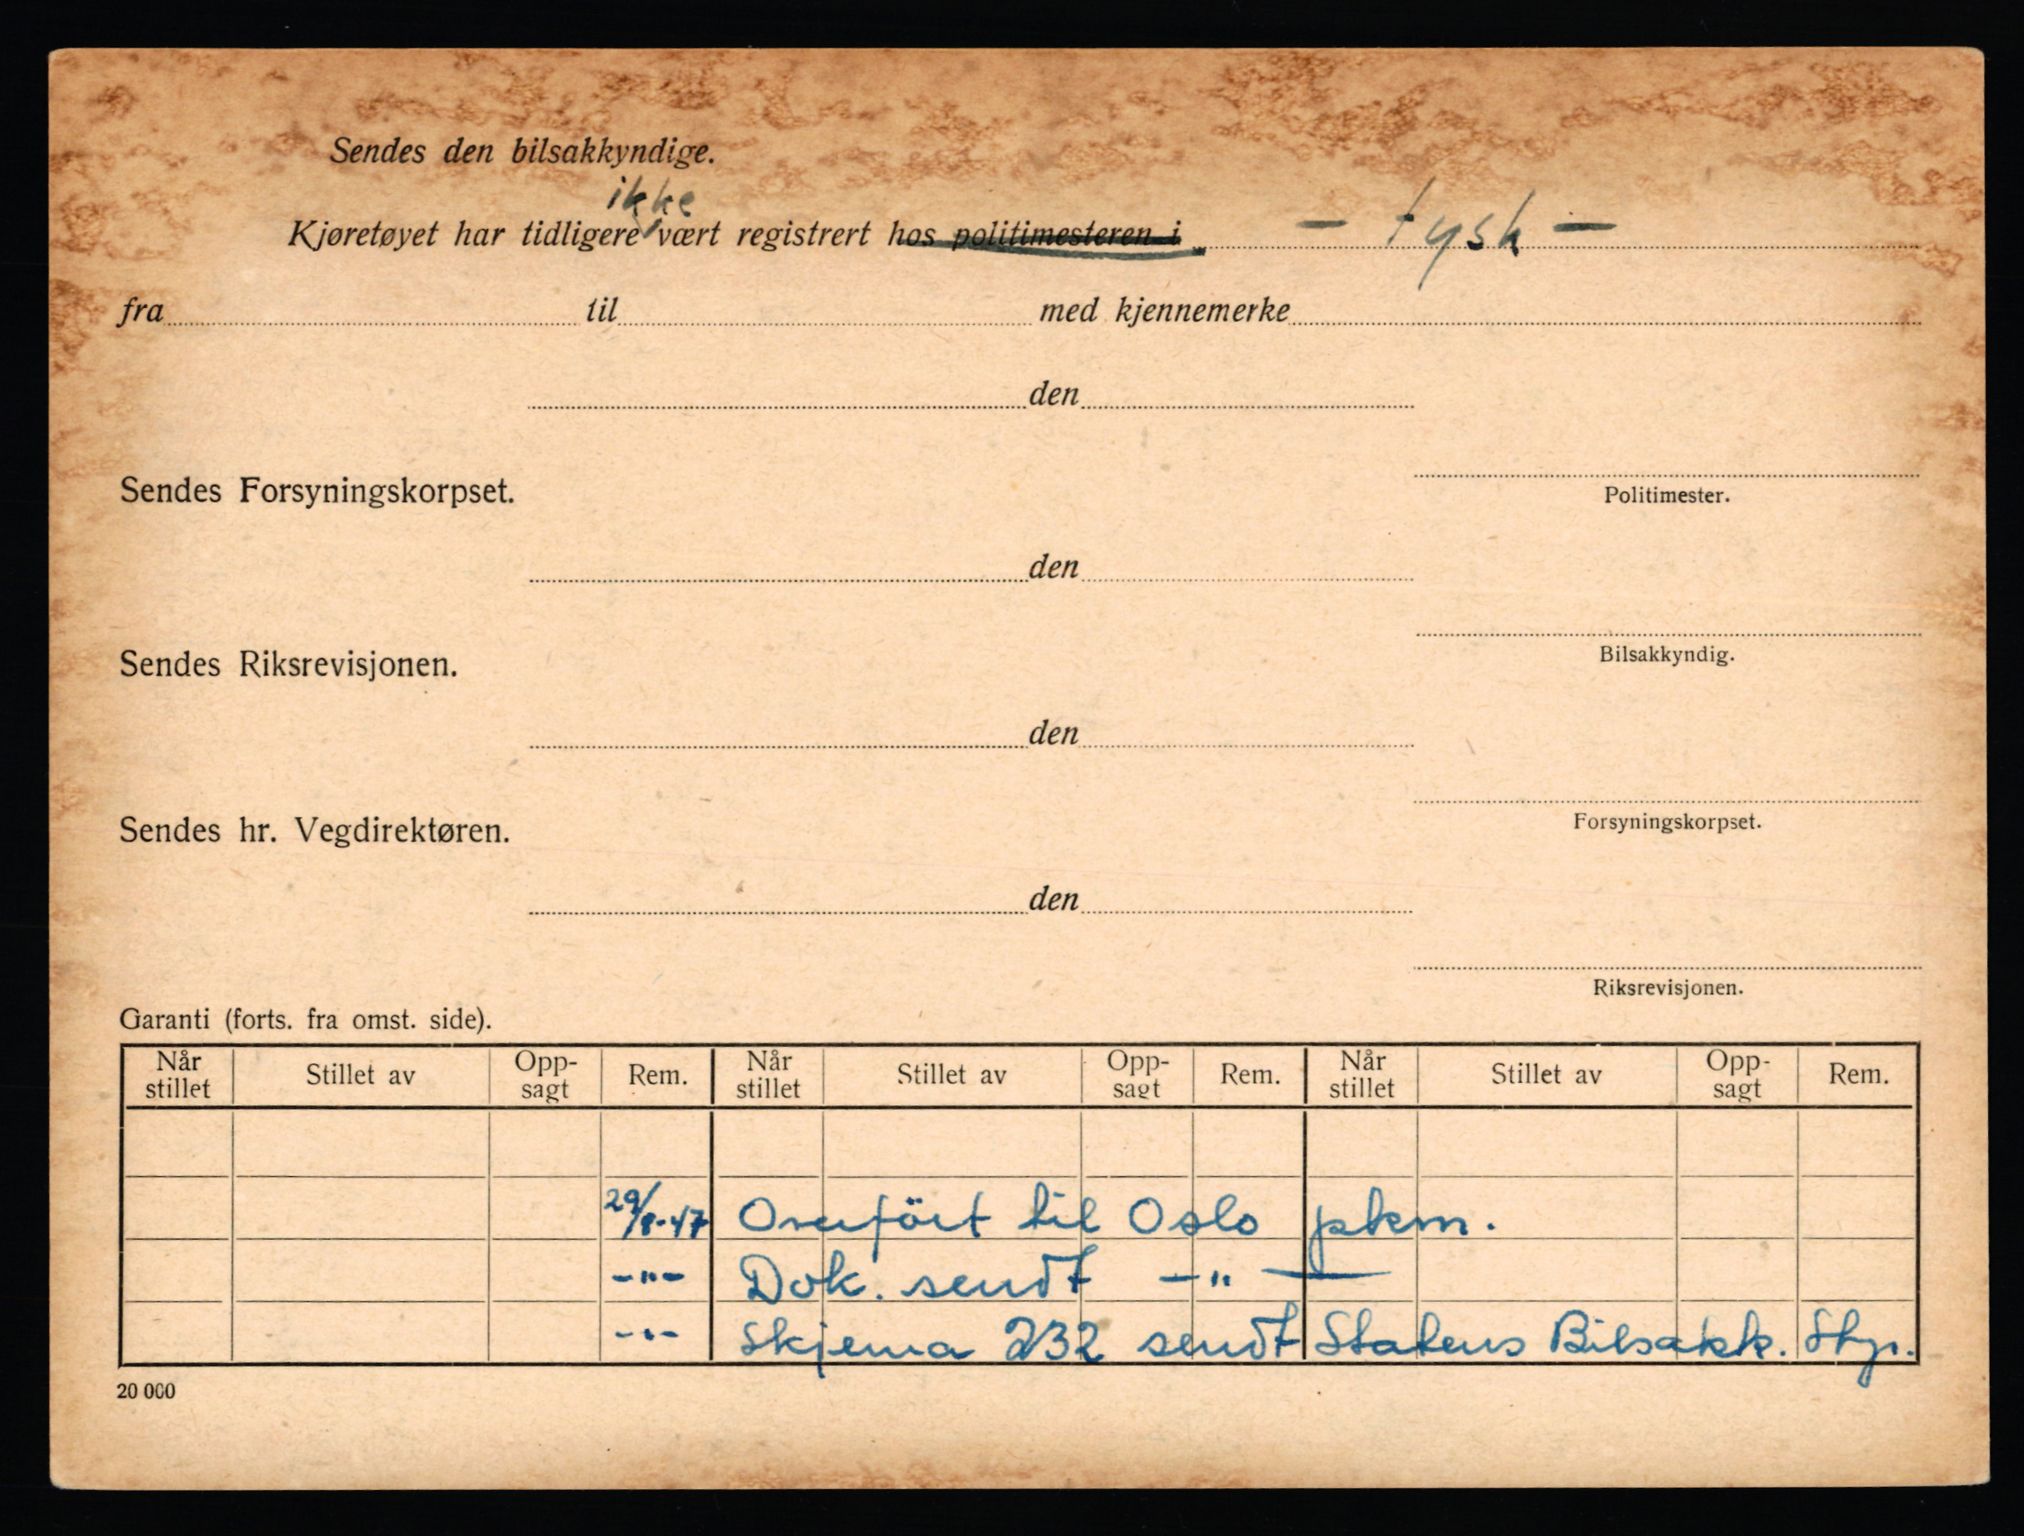 Sendes den bilsakkyndige.
ikke
Kjøretøyet har tidligere vært registrert hos politimesteren i - tysk -
fra til med kjennemerke
den
Politimester.
Sendes Forsyningskorpset.
den
Bilsakkyndig.
Sendes Riksrevisjonen.
den
Forsyningskorpset.
Sendes hr. Vegdirektøren.
den
Riksrevisjonen.
Garanti (forts. fra omst. side).
Når stillet Stillet av Opp-sagt Rem. Når stillet Stillet av Opp-sagt Rem. Når stillet Stillet av Opp-sagt Rem.
29/8-47 Overfört til Oslo pkm.
-"- Dok. sendt -"-
-"- Skjema 232 sendt Statens Bilsakk. Styr.
20 000